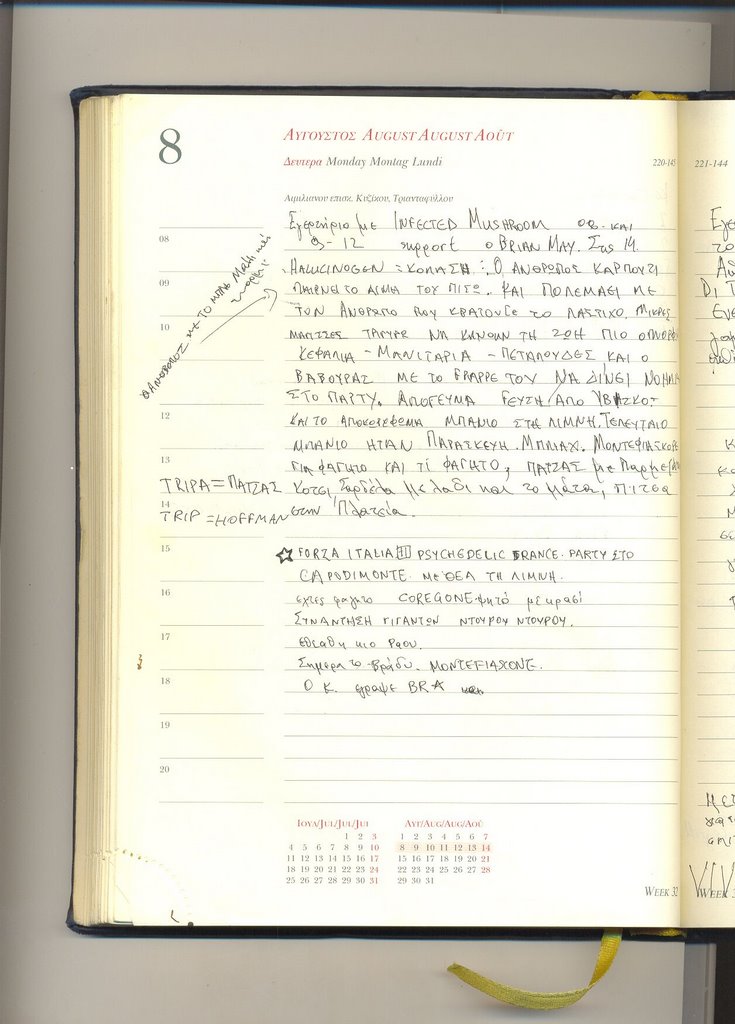 8
ΑΥΓΟΥΣΤΟΣ AUGUST AUGUST AOÛT
Δευτερα Monday Montag Lundi
220-145
221-144
Αιμιλιανου επισκ. Κυζίκου, Τριανταφύλλου
Εγερτήριο με INFECTED MUSHROOM ΚΑΙ
08
9-12 support ο BRIAN MAY. Στις 14.
HALUCINOGEN = ΚΟΛΑΣΗ : Ο ΑΝΘΡΩΠΟΣ ΚΑΡΠΟΥΖΙ
09
ΠΑΙΡΝΕΙ ΤΟ ΑΙΜΑ ΤΟΥ ΠΙΣΩ. ΚΑΙ ΠΟΛΕΜΑΕΙ ΜΕ
ΤΟΝ ΑΝΘΡΩΠΟ ΠΟΥ ΚΡΑΤΟΥΣΕ ΤΟ ΛΑΣΤΙΧΟ. ΜΙΚΡΕΣ
10
ΝΑ ΚΑΝΟΥΝ ΤΗ ΖΩΗ ΠΙΟ
ΚΕΦΑΛΙΑ - ΜΑΝΙΤΑΡΙΑ - ΠΕΤΑΛΟΥΔΕΣ ΚΑΙ Ο
Ο ΑΝΘΡΩΠΟΣ ΜΕ ΤΟ ΜΠΛΕ ΜΑΛΛΙ και
ΒΑΒΟΥΡΑΣ ΜΕ ΤΟ ΦΡΑΠΕ ΤΟΥ ΝΑ ΔΙΝΕΙ ΝΟΗΜΑ
ΣΤΟ ΠΑΡΤΥ. ΑΠΟΓΕΥΜΑ ΓΕΥΣΗ ΑΠΟ
12
ΚΑΙ ΤΟ ΑΠΟΚΟΡΥΦΩΜΑ ΜΠΑΝΙΟ ΣΤΗ ΛΙΜΝΗ. ΤΕΛΕΥΤΑΙΟ
ΜΠΑΝΙΟ ΗΤΑΝ ΠΑΡΑΣΚΕΥΗ. ΜΠΛΙΑΧ. ΜΟΝΤΕΦΙΑΣΚΟΝΕ
13
ΓΙΑ ΦΑΓΗΤΟ ΚΑΙ ΤΙ ΦΑΓΗΤΟ, ΠΑΤΣΑΣ με Παρμεζάνα
TRIPA = ΠΑΤΣΑΣ
Κότσι, Σαρδέλα με λάδι και το μάτσο, ΠΙΤΣΑ
14
TRIP = HOFFMAN
στην Πλατεία.
15
☆ FORZA ITALIA PSYCHEDELIC TRANCE PARTY ΣΤΟ
CAPODIMONTE. ΜΕ ΘΕΑ ΤΗ ΛΙΜΝΗ.
16
εχτες φαγητο COREGONE ψητό με κρασί
ΣΥΝΑΝΤΗΣΗ ΓΙΓΑΝΤΩΝ ΝΤΟΥΡΟΥ ΝΤΟΥΡΟΥ.
17
Σημερα το βράδυ. MONTEFIASCONE.
18
Ο Κ. εγραψε BRA
19
20
ΙΟΥΛ/JUL/JUL/JUI
1 2 3
4 5 6 7 8 9 10
11 12 13 14 15 16 17
18 19 20 21 22 23 24
25 26 27 28 29 30 31
ΑΥΓ/AUG/AUG/AOÛ
1 2 3 4 5 6 7
8 9 10 11 12 13 14
15 16 17 18 19 20 21
22 23 24 25 26 27 28
29 30 31
WEEK 32
WEEK